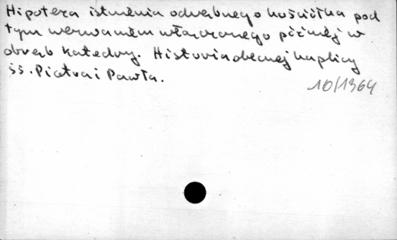 Hipoteza istnienia odrębnego kościółka pod
tym wezwaniem włączonego później w
obręb katedry. Historia obecnej kaplicy
śś. Piotra i Pawła.
10/1364